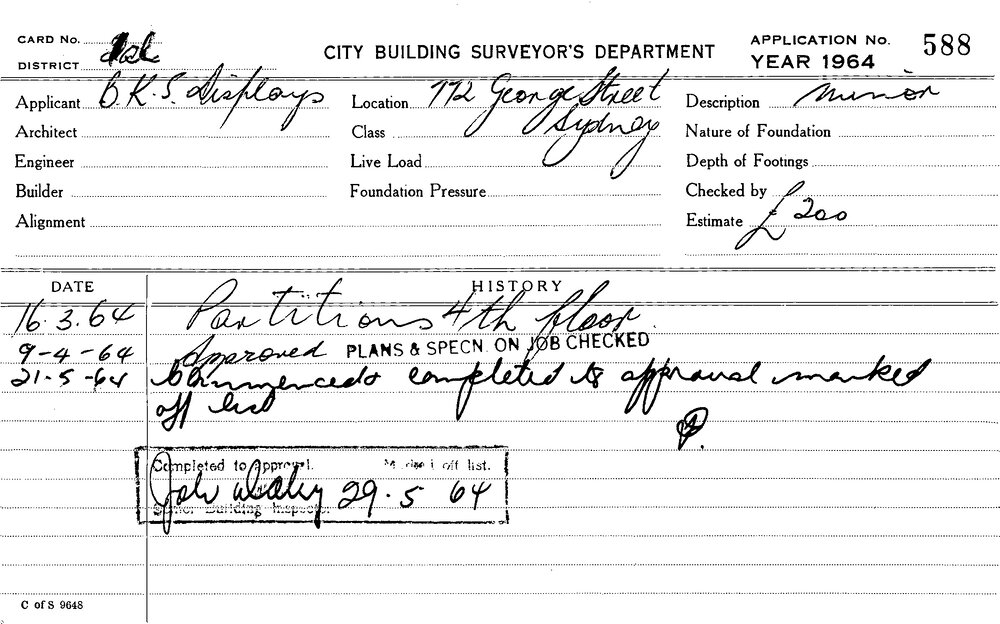 CARD No.
CITY BUILDING SURVEYOR'S DEPARTMENT
APPLICATION No. 588
DISTRICT
YEAR 1964
Applicant B.K.S. Displays
Location 772 George Street
Sydney
Description Minor
Architect
Class
Nature of Foundation
Engineer
Live Load
Depth of Footings
Builder
Foundation Pressure
Checked by
Alignment
Estimate £200
DATE
HISTORY
16.3.64 Partitions 4th floor.
9-4-64 Approved PLANS & SPECN. ON JOB CHECKED
21-5-64 Commenced & completed to approval marked
off list
Completed to Approval. Marked off list.
29.5 64
Building Inspector
C of S 9648